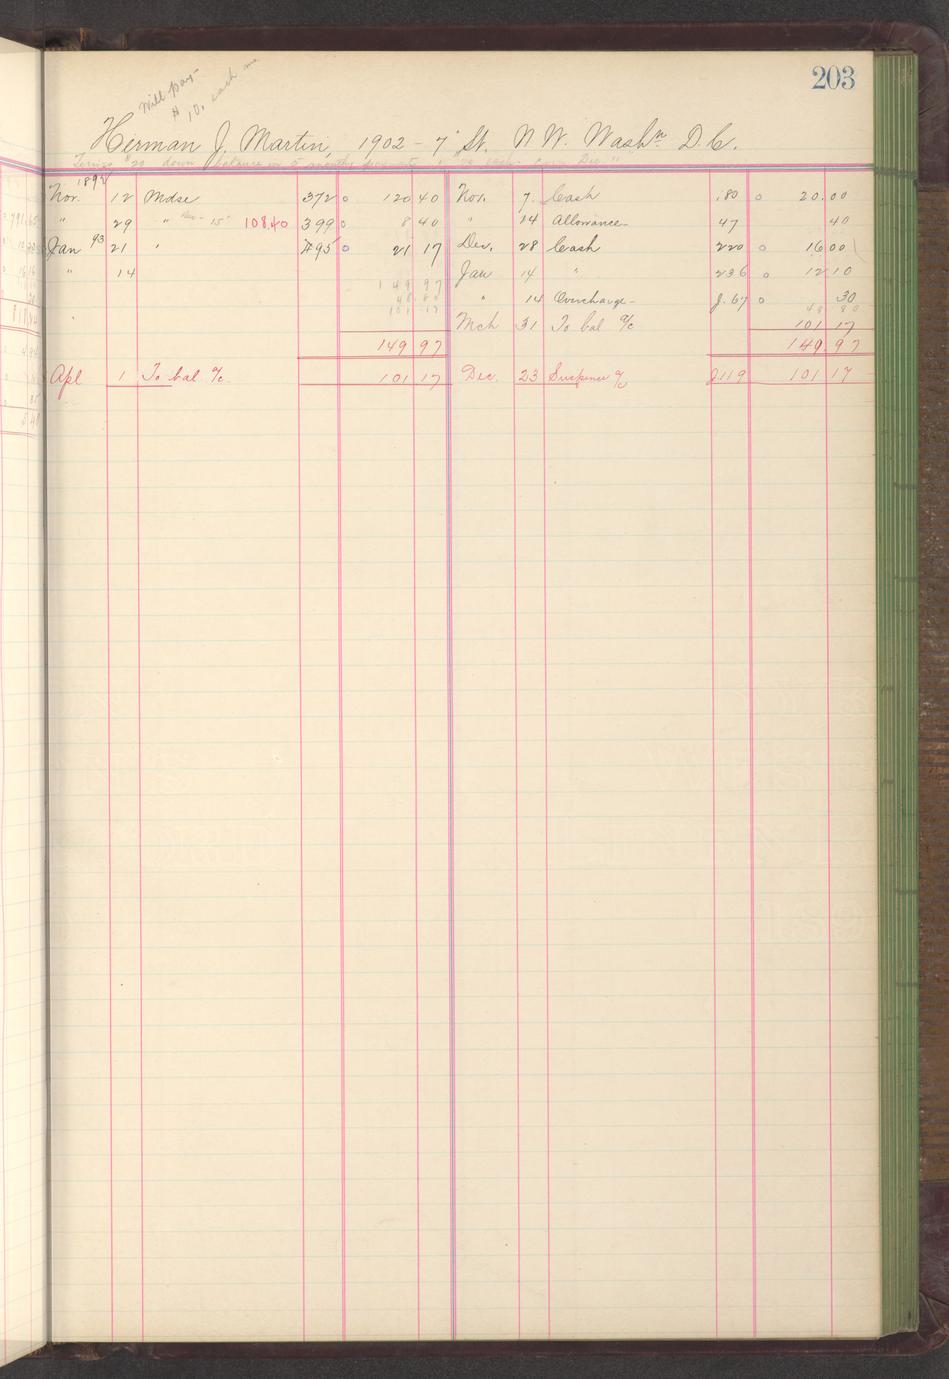 203
Will pay
$10. each mo
Herman J. Martin, 1902 - 7" St. N. W. Washn D. C.
Terms $20 down balance in 5 monthly payments
1892
Nov. 12 Mdse 372 0 120 40 Nov. 7 Cash 180 0 20.00
" 29 " " 15" 108.40 399 0 8 40 " 14 Allowance 47 40
Jan 93 21 " 495 0 21 17 Dec. 28 Cash 220 0 16 00
" 14 Jan 14 " 236 0 12 10
149 97 " 14 Overcharge J. 67 0 30
48 80 48 80
101 17 Mch 31 To bal a/c 101 17
149 97 149.97
Apl 1 To bal a/c. 101 17 Dec. 23 Suspense a/c J119 101 17